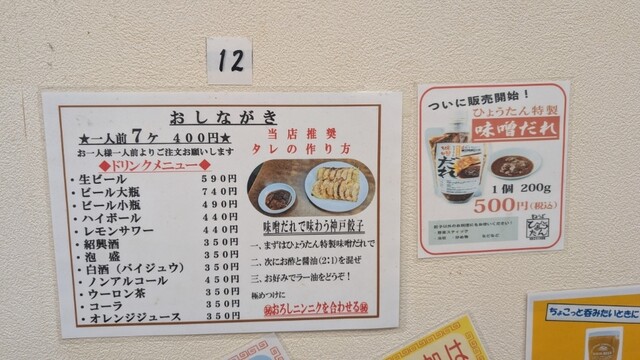 12
おしながき
★一人前7ケ 400円★
お一人様一人前よりご注文お願いします
◆ドリンクメニュー◆
・生ビール 590円
・ビール大瓶 740円
・ビール小瓶 490円
・ハイボール 440円
・レモンサワー 440円
・紹興酒 350円
・泡盛 350円
・白酒（バイジュウ） 350円
・ノンアルコール 450円
・ウーロン茶 350円
・コーラ 350円
・オレンジジュース 350円
当店推奨
タレの作り方
味噌だれで味わう神戸餃子
一、まずはひょうたん特製味噌だれで
二、次にお酢と醤油(2:1)を混ぜ
三、お好みでラー油をどうぞ！
極めつけに
おろしニンニクを合わせる
ついに販売開始！
ひょうたん特製
味噌だれ
1個 200g
500円(税込)
ひょうたん
ちょこっと呑みたいときに
は